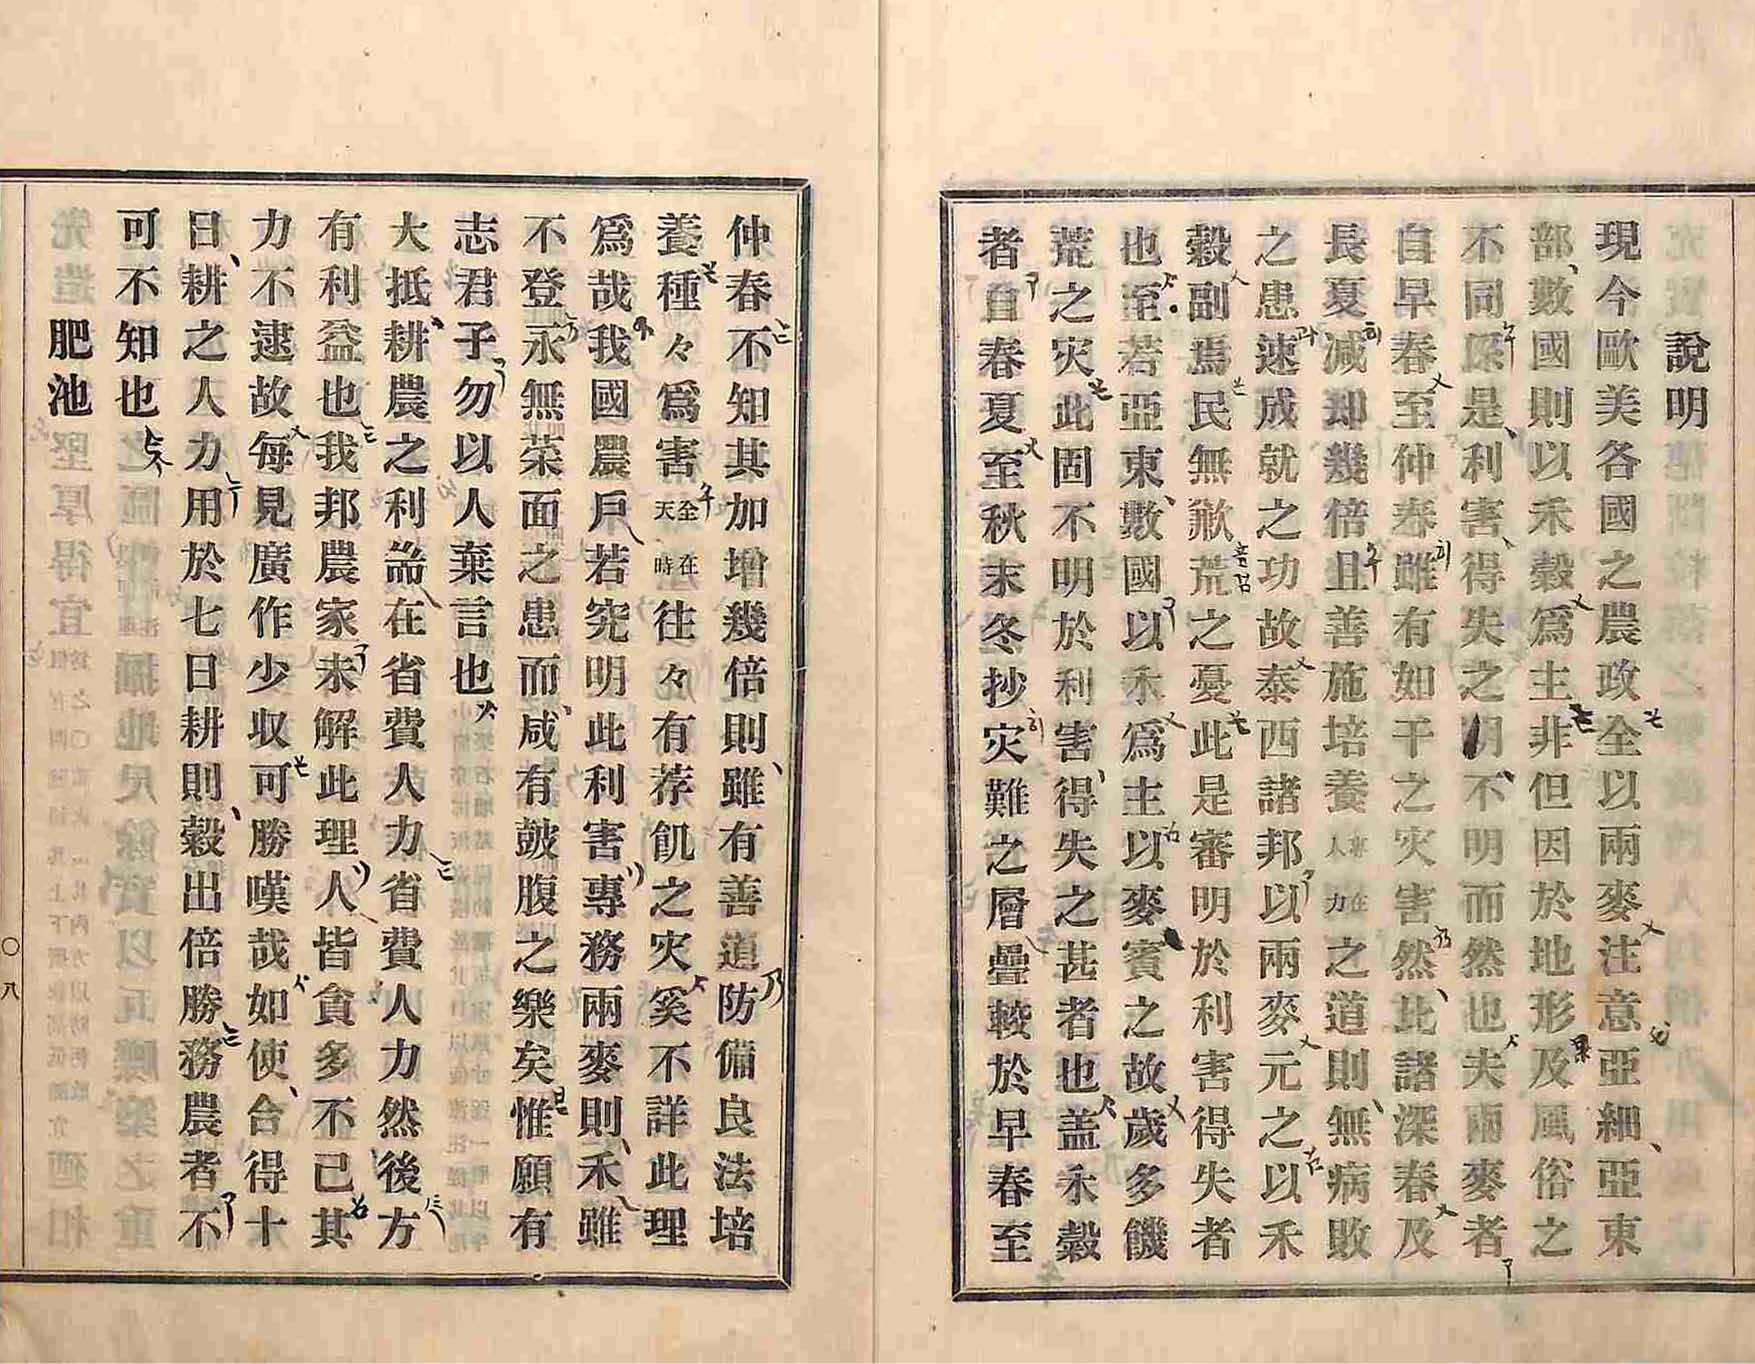 說明
現今歐美各國之農政全以兩麥注意亞細亞東
部數國則以禾穀爲主非但因於地形及風俗之
不同係是利害得失之明不明而然也夫兩麥者
自早春至仲春雖有如干之灾害然此諸深春及
長夏减却幾倍且善施培養專在人力之道則無病敗
之患速成就之功故泰西諸邦以兩麥元之以禾
穀副焉民無歉荒之憂此是審明於利害得失者
也至若亞東數國以禾爲主以麥賓之故歲多饑
荒之灾此固不明於利害得失之甚者也盖禾穀
者自春夏至秋末冬抄灾難之層疊較於早春至
仲春不知其加增幾倍則雖有善道防備良法培
養種々爲害全在天時往々有荐飢之灾奚不詳此理
爲哉我國農戶若究明此利害專務兩麥則禾雖
不登永無菜面之患而咸有鼓腹之樂矣惟願有
志君子勿以人棄言也
大抵耕農之利耑在省費人力省費人力然後方
有利益也我邦農家未解此理人皆貪多不已其
力不逮故每見廣作少収可勝嘆哉如使合得十
日耕之人力用於七日耕則穀出倍勝務農者不
可不知也
肥池
〇八